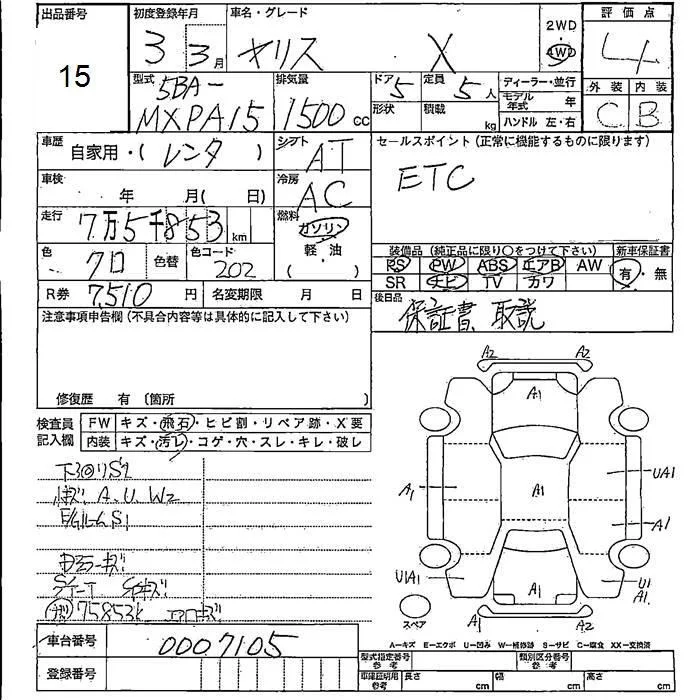 出品番号 15
初度登録年月 3 3月
車名・グレード ヤリス X
2WD 4WD
評価点 4
外装 C 内装 B
型式 5BA-MXPA15
排気量 1500cc
ドア 5
形状
定員 5人
積載 kg
ディーラー・並行
モデル年式 年
ハンドル 左・右
車歴 自家用・(レンタ)
シフト AT
セールスポイント (正常に機能するものに限ります)
ETC
車検 年 月( 日)
冷房 AC
走行 7万5千853km
燃料 ガソリン
軽・油
( )
色 クロ 色替
色コード 202
装備品 (純正品に限り○をつけて下さい)
新車保証書
有・無
PS PW ABS エアB AW
SR ナビ TV カワ
R券 7510円
名変期限 月 日
後日品 保証書 取説
注意事項申告欄 (不具合内容等は具体的に記入して下さい)
修復歴 有 〔箇所 〕
検査員記入欄
FW キズ・飛石・ヒビ割・リペア跡・X要
内装 キズ・汚レ・コゲ・穴・スレ・キレ・破レ
A.U.W2
S1
75853k
A2 A2
A1
UA1
A1 A1
A1
U1A1
A1
U1
A1
A1 A2
スペア
A—キズ E—エクボ U—凹み W—補修跡 S—サビ C—腐食 XX—交換済
車台番号 0007105
登録番号
型式指定番号 参考
類別区分番号 参考
車庫証明用 参考
長さ cm
幅 cm
高さ cm